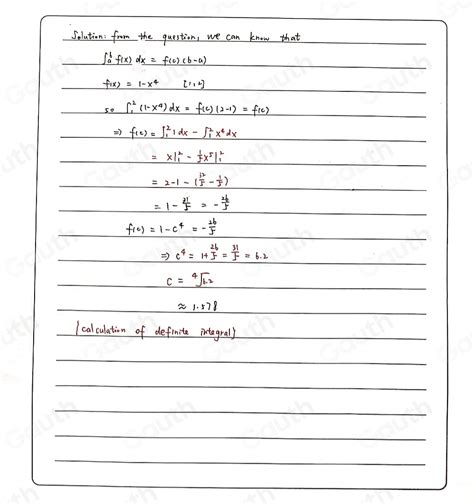 Solution: from the question, we can know that
∫ₐᵇ f(x) dx = f(c) (b-a)
f(x) = 1-x⁴ [1,2]
so ∫₁² (1-x⁴) dx = f(c) (2-1) = f(c)
⇒ f(c) = ∫₁² 1 dx - ∫₁² x⁴ dx
= x|₁² - 1/5 x⁵|₁²
= 2-1 - (32/5 - 1/5)
= 1 - 31/5 = - 26/5
f(c) = 1-c⁴ = - 26/5
⇒ c⁴ = 1+ 26/5 = 31/5 = 6.2
c = ⁴√6.2
≈ 1.578
(calculation of definite integral)